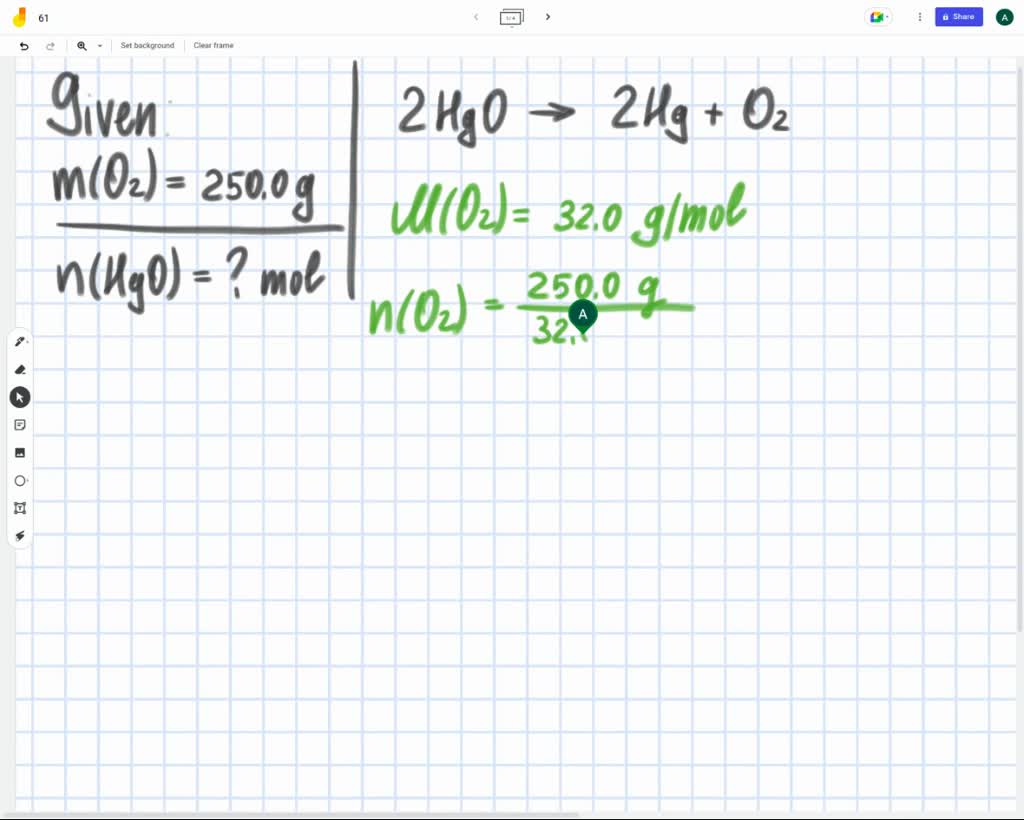 61
1/4
Share
A
Set background
Clear frame
Given:
m(O₂) = 250.0 g
n(HgO) = ? mol
2HgO → 2Hg + O₂
M(O₂) = 32.0 g/mol
n(O₂) = 250.0 g
32.
A